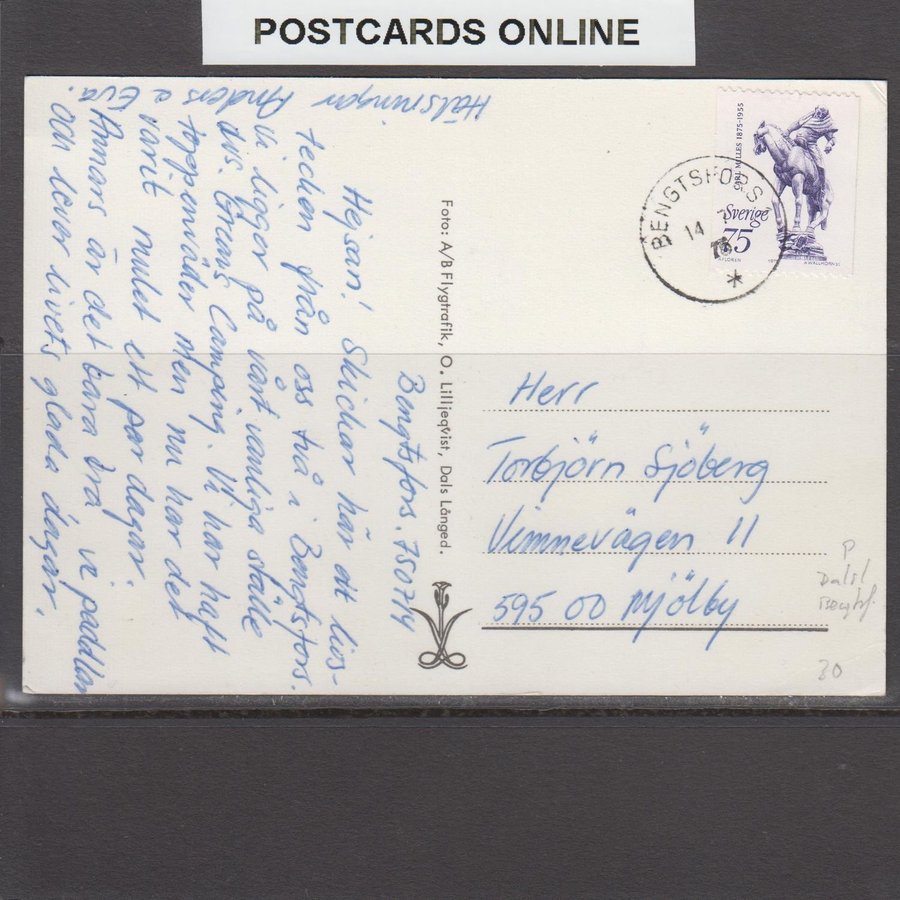 POSTCARDS ONLINE
Bengtsfors. 750714
Hejsan! Skickar här ett livs-
tecken från oss två i Bengtsfors.
Vi ligger på vårt vanliga ställe
dvs. Camping. Vi har haft
toppenväder men nu har det
varit mulet ett par dagar.
Annars är det bara bra vi paddlar
och lever livets glada dagar.
Hälsningar
Anders o Eva
Foto: A/B Flygtrafik, O. Lilljeqvist, Dals Långed.
CARL MILLES 1875-1955
Sverige
75
BENGTSFORS
14
Herr
Torbjörn Sjöberg
Vimnevägen 11
595 00 Mjölby
P
Dalsl
20